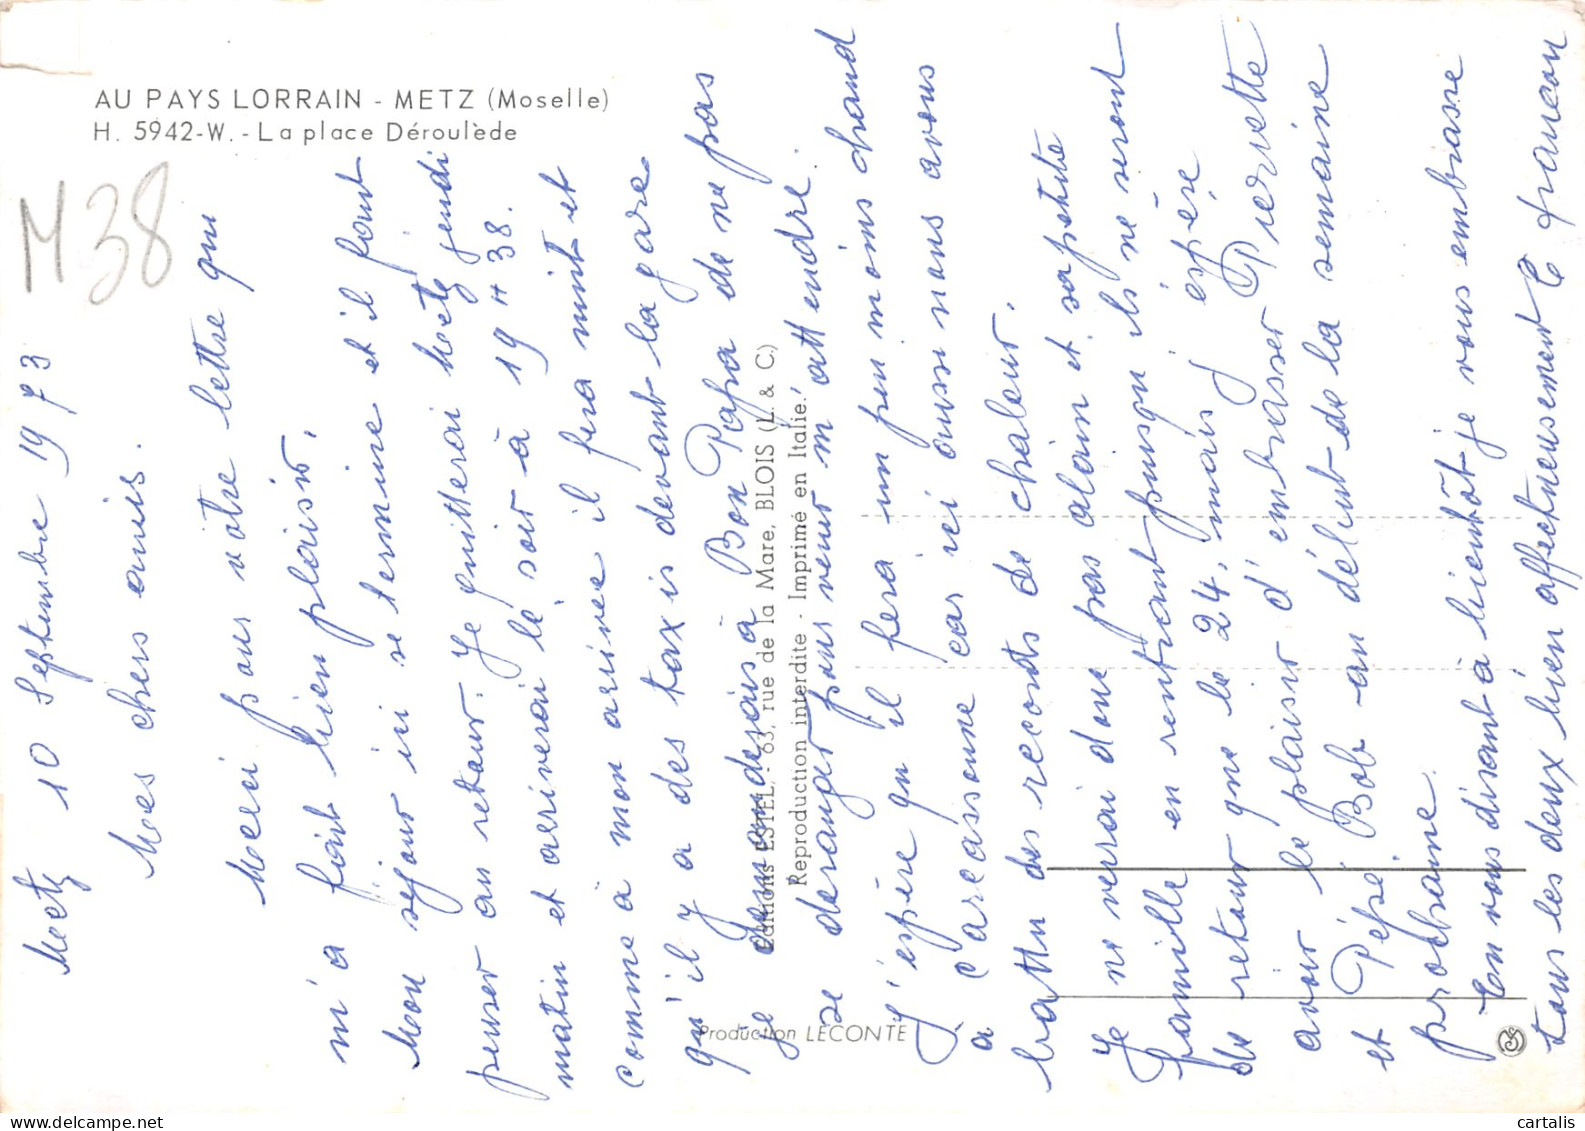 AU PAYS LORRAIN - METZ (Moselle)
H. 5942-W. - La place Déroulède
M38
Metz 10 Septembre 1973
Mes chers amis.
Merci pour votre lettre qui
m'a fait bien plaisir.
Mon séjour ici se termine et il faut
penser au retour. Je quitterai Metz jeudi
matin et arriverai le soir à 19 H 38.
comme à mon arrivée il fera nuit et
qu'il y a des taxis devant la gare
je demanderais à Bon Papa de ne pas
se deranger pour venir m'attendre.
J'espère qu'il fera un peu moins chaud
a Carcassonne car ici aussi nous avons
battu des records de chaleur.
Je ne verrai donc pas alain et sa petite
famille en rentrant puisqu'ils ne seront
de retour que le 24, mais j'éspère
avoir le plaisir d'embrasser Pierrette
et Pépé Bob au début de la semaine
prochaine.
En vous disant à bientôt je vous embrasse
tous les deux bien affectueusement
Editions ESTEL, - 63, rue de la Mare, BLOIS (L. & C.)
Reproduction interdite - Imprimé en Italie.
Production LECONTE
cartalis